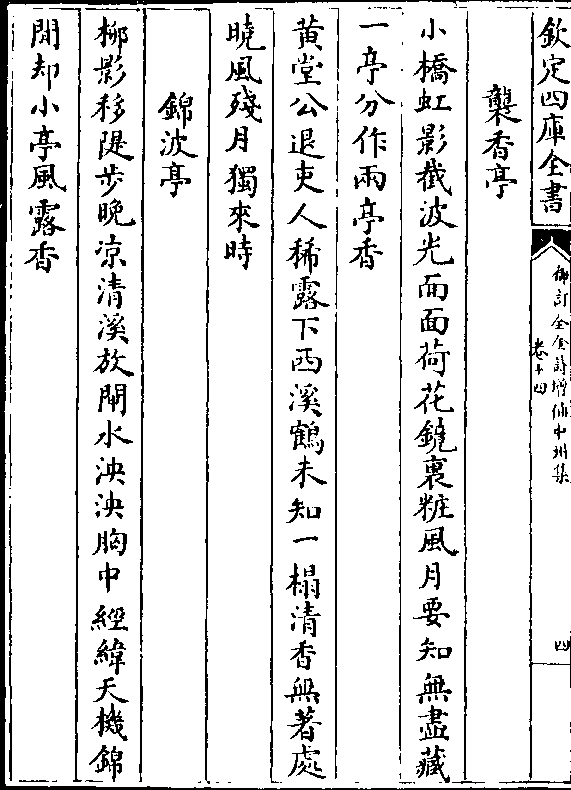 欽定四庫全書
御訂全金詩增補中州集
卷十四
四
襲香亭
小橋虹影截波光面面荷花鏡裏粧風月要知無盡藏
一亭分作兩亭香
黄堂公退吏人稀露下西溪鶴未知一榻清香無著處
曉風殘月獨來時
錦波亭
柳影移隄步晩凉清溪放閘水泱泱胸中經緯天機錦
閒却小亭風露香